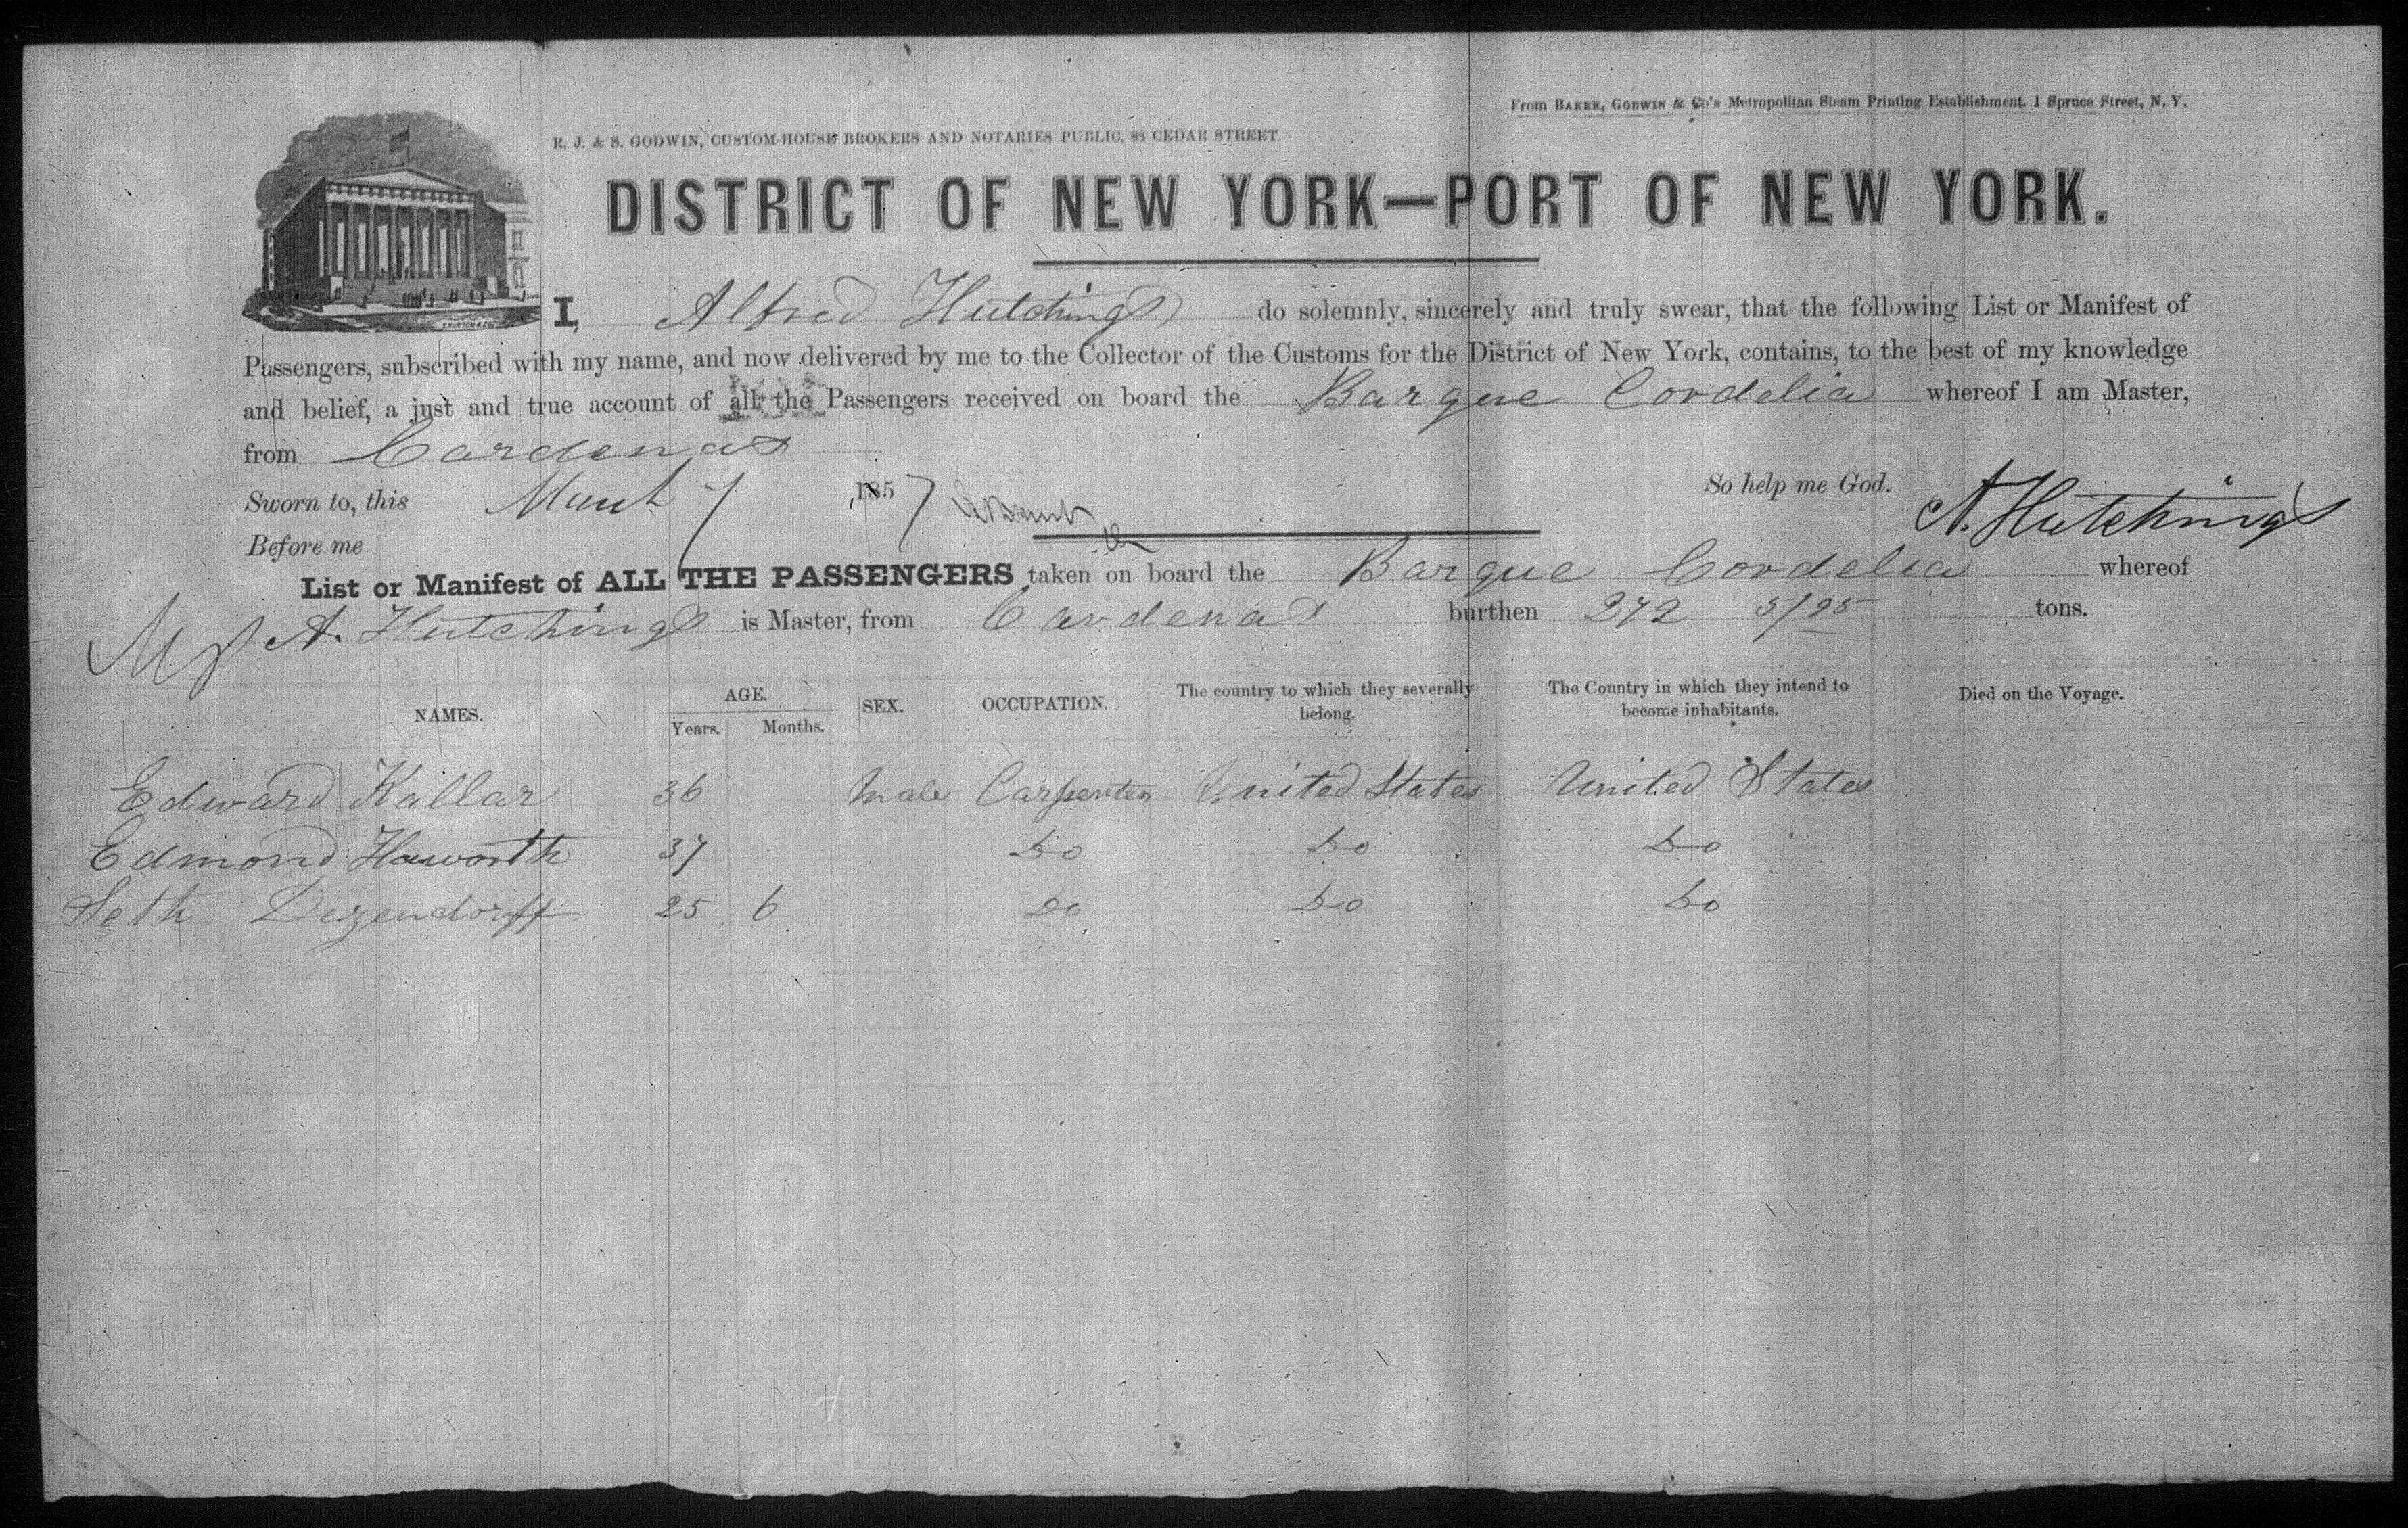 From BAKER, GODWIN & Co's Metropolitan Steam Printing Establishment. 1 Spruce Street, N. Y.
R. J. & S. GODWIN, CUSTOM-HOUSE BROKERS AND NOTARIES PUBLIC, 88 CEDAR STREET.
DISTRICT OF NEW YORK—PORT OF NEW YORK.
I, Alfred Hutchings do solemnly, sincerely and truly swear, that the following List or Manifest of
Passengers, subscribed with my name, and now delivered by me to the Collector of the Customs for the District of New York, contains, to the best of my knowledge
and belief, a just and true account of all the Passengers received on board the Barque Cordelia whereof I am Master,
from Cardenas
So help me God. A. Hutchings
Sworn to, this 7 1857
Before me
List or Manifest of ALL THE PASSENGERS taken on board the Barque Cordelia whereof
A. Hutchings is Master, from Cardenas burthen 272 5/95 tons.
NAMES. AGE. Years. Months. SEX. OCCUPATION. The country to which they severally belong. The Country in which they intend to become inhabitants. Died on the Voyage.
Edward Kallar 36 Male Carpenter United States United States
Edmond Haworth 37 Do Do Do
Seth Dezendorff 25 6 Do Do Do